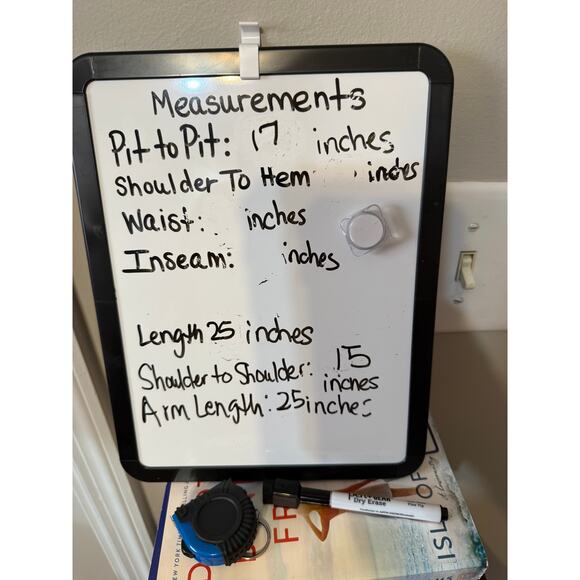 Measurements
Pit to Pit: 17 inches
Shoulder To Hem inches
Waist: inches
Inseam: inches
Length 25 inches
Shoulder to Shoulder: 15
inches
Arm Length: 25 inches
Dry Erase
NEW YORK
ISL
OF